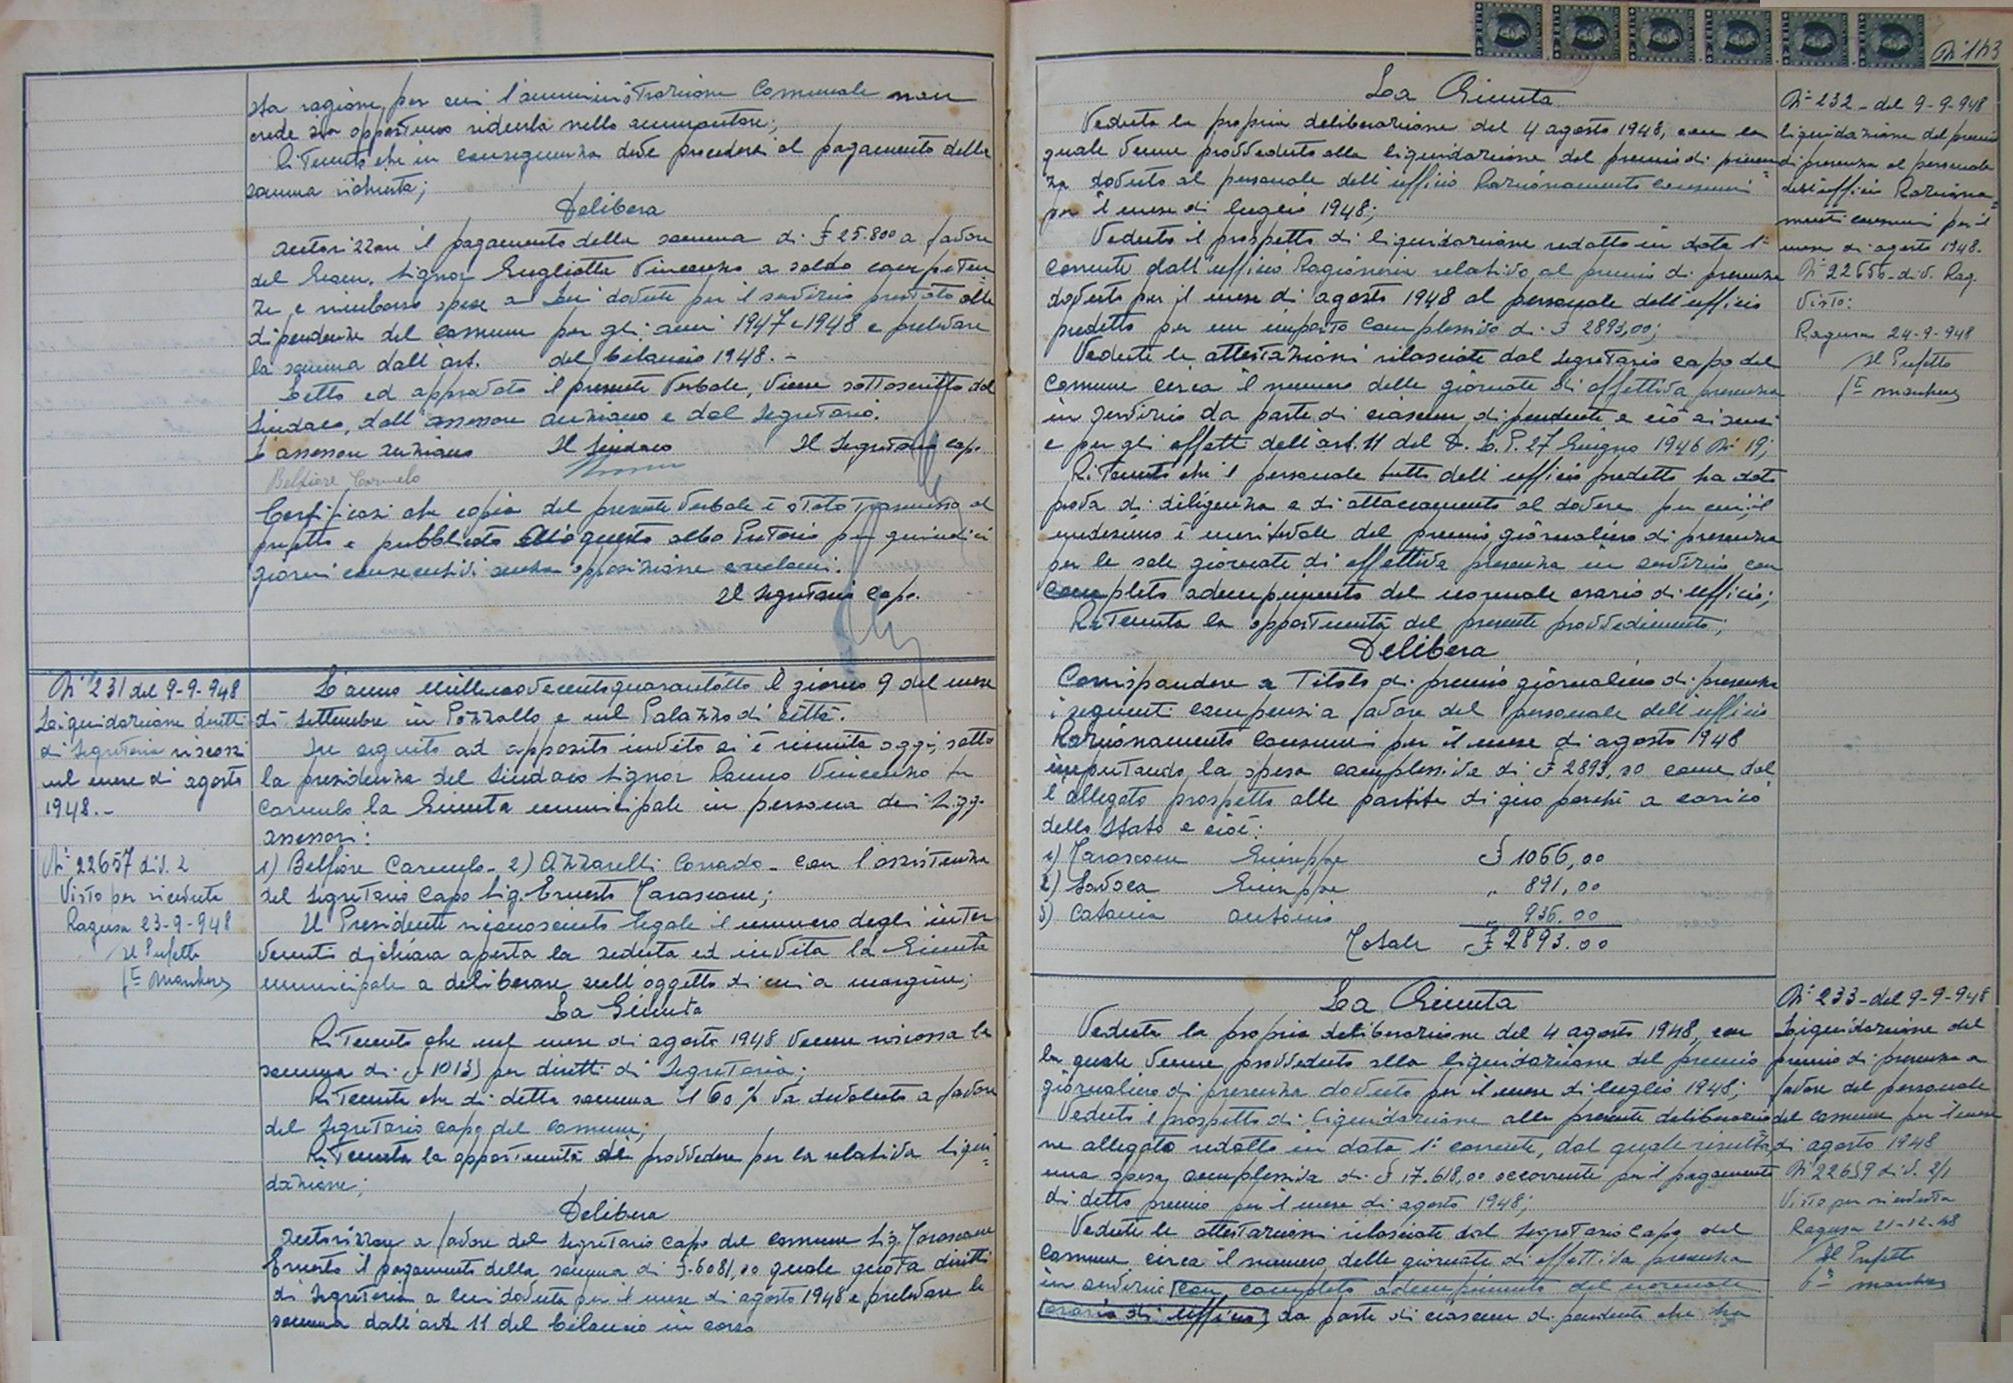 sta ragione, per cui l'amministrazione comunale non
crede opportuno ridurla nello ammontare;
Ritenuto che in conseguenza deve procedere al pagamento della
somma richiesta;
Delibera
Autorizzare il pagamento della somma di £ 25.800 a favore
del Geom. Signor Gugliotta Vincenzo a saldo competen
ze e rimborso spese a lui dovute per il servizio prestato alle
dipendenze del comune per gli anni 1947 e 1948 e prelevare
la somma dall'art. del bilancio 1948.-
Letto ed approvato il presente verbale, viene sottoscritto dal
Sindaco, dall'assessore anziano e dal Segretario.
L'assessore anziano Il Sindaco Il Segretario capo
Belfiore Carmelo
Certificasi che copia del presente verbale è stata trasmessa al
prefetto e pubblicata all'albo Pretorio per quindici
giorni consecutivi senza opposizione o reclami.
Il Segretario Capo.
N° 231 del 9-9-948
Liquidazione diritti
di Segreteria riscossi
nel mese di agosto
1948.-
N° 22657 div. 2
Visto per ricevuta
Ragusa 23-9-948
Il Prefetto
L'anno millenovecentoquarantotto il giorno 9 del mese
di Settembre in Pozzallo e nel Palazzo di città.
In seguito ad apposito invito si è riunita oggi, sotto
la presidenza del Sindaco Signor Vincenzo fu
Carmelo la Giunta municipale in persona dei Sigg.
assessori:
1) Belfiore Carmelo - 2) Azzarelli Corrado - con l'assistenza
del Segretario Capo Sig. Ernesto Tarascone;
Il Presidente riconosciuto legale il numero degli inter
venuti dichiara aperta la seduta ed invita la Giunta
municipale a deliberare sull'oggetto di cui a margine;
La Giunta
Ritenuto che nel mese di agosto 1948 venne riscossa la
somma di £ 10135 per diritti di Segreteria;
Ritenuto che di detta somma il 60% va devoluto a favore
del Segretario capo del comune;
Ritenuta la opportunità di provvedere per la relativa liqui
dazione;
Delibera
Autorizzare a favore del Segretario Capo del comune Sig. Tarascone
Ernesto il pagamento della somma di £. 6081,00 quale quota diritti
di Segreteria a lui dovuta per il mese di agosto 1948 e prelevare la
somma dall'art. 11 del bilancio in corso
N° 143
La Giunta
Veduta la propria deliberazione del 4 agosto 1948, con la
quale venne provveduto alla liquidazione del premio di presen
za dovuto al personale dell'ufficio Razionamento consumi
per il mese di luglio 1948;
Veduto il prospetto di liquidazione redatto in data 1°
corrente dall'ufficio Ragioneria relativo al premio di presenza
dovuto per il mese di agosto 1948 al personale dell'ufficio
predetto per un importo complessivo di £ 2893,00;
Vedute le attestazioni rilasciate dal Segretario capo del
comune circa il numero delle giornate di effettiva presenza
in servizio da parte di ciascun dipendente e ciò ai sensi
e per gli effetti dell'art. 11 del D. L. P. 27 Giugno 1946 N° 19;
Ritenuto che il personale tutto dell'ufficio predetto ha dato
prova di diligenza e di attaccamento al dovere per cui il
medesimo è meritevole del premio giornaliero di presenza
per le sole giornate di effettiva presenza in servizio con
completo adempimento del normale orario di ufficio;
Ritenuta la opportunità del presente provvedimento;
Delibera
Corrispondere a Titolo di premio giornaliero di presenza
i seguenti compensi a favore del personale dell'ufficio
Razionamento consumi per il mese di agosto 1948
imputando la spesa complessiva di £ 2893,00 come dal
l'allegato prospetto alle partite di giro perché a carico
dello Stato e cioè:
1) Tarascone Giuseppe £ 1066,00
2) Savoca Giuseppe " 891,00
3) Catania Antonio " 936.00
Totale £ 2893.00
N° 232 - del 9-9-948
liquidazione del premio
di presenza al personale
dell'ufficio Raziona=
mento consumi per il
mese di agosto 1948.
N° 22656 - div. Rag.
Visto:
Ragusa 24-9-948
Il Prefetto
La Giunta
Veduta la propria deliberazione del 4 agosto 1948, con
la quale venne provveduto alla liquidazione del premio
giornaliero di presenza dovuto per il mese di luglio 1948;
Veduto il prospetto di liquidazione alla presente deliberazio
ne allegato redatto in data 1° corrente, dal quale risulta
una spesa complessiva di £ 17.618,00 occorrente per il pagamento
di detto premio per il mese di agosto 1948;
Vedute le attestazioni rilasciate dal Segretario Capo del
Comune circa il numero delle giornate di effettiva presenza
in servizio con completo adempimento del normale
orario di ufficio, da parte di ciascun dipendente che ha
N° 233 - del 9-9-948
Liquidazione del
premio di presenza a
favore del personale
del comune per il mese
di agosto 1948
N° 22659 div. 2/1
Visto per ricevuta
Ragusa 21-12-48
Il Prefetto